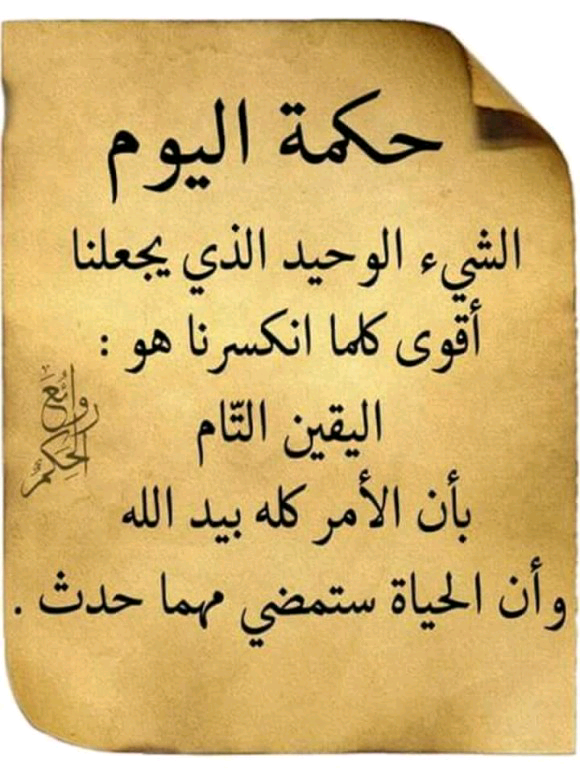 حكمة اليوم
الشيء الوحيد الذي يجعلنا
أقوى كلما انكسرنا هو :
اليقين التّام
بأن الأمر كله بيد الله
وأن الحياة ستمضي مهما حدث .
روائع
الحكم